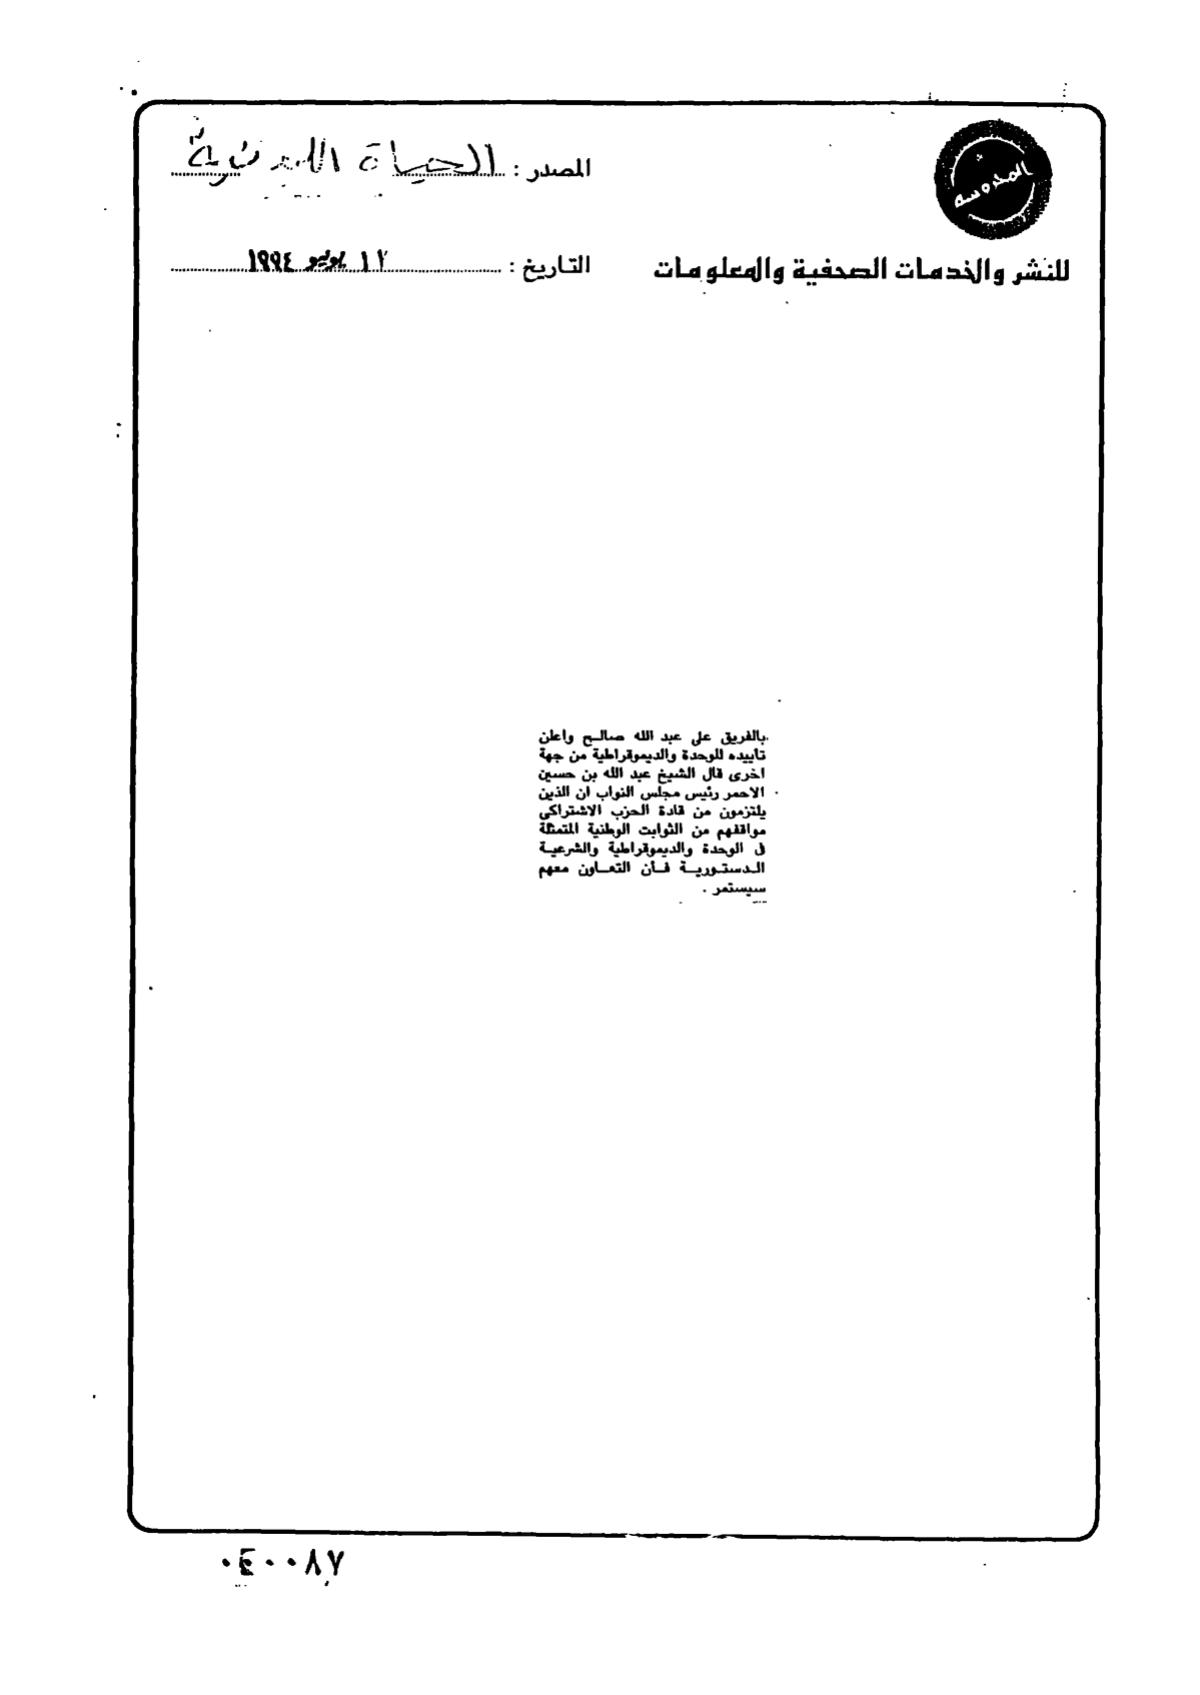 المحروسة
للنشر والخدمات الصحفية والمعلومات
المصدر : الحياة اللندنية
التاريخ : ١٢ يونيو ١٩٩٤
بالفريق على عبد الله صالح واعلن
تأييده للوحدة والديموقراطية من جهة
اخرى قال الشيخ عبد الله بن حسين
الاحمر رئيس مجلس النواب ان الذين
يلتزمون من قادة الحزب الاشتراكى
مواقفهم من الثوابت الوطنية المتمثلة
فى الوحدة والديموقراطية والشرعية
الدستورية فأن التعاون معهم
سيستمر .
٠٤٠٠٨٧